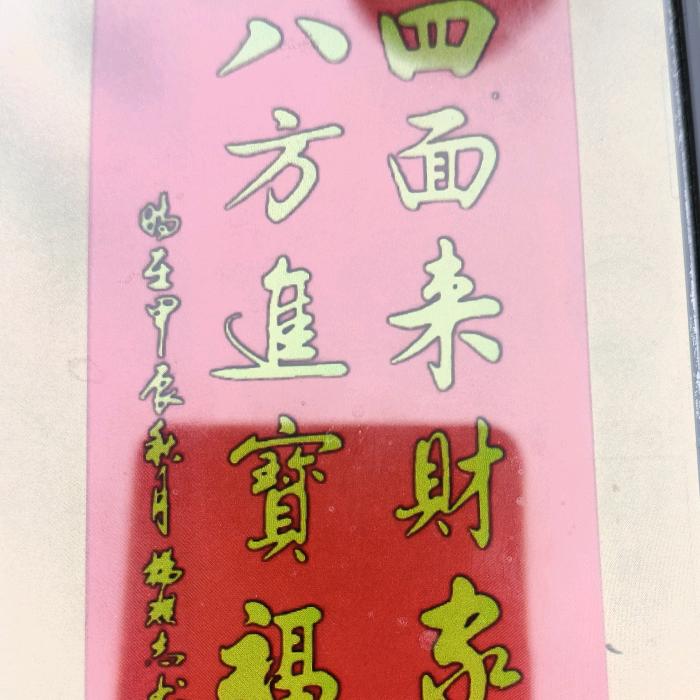 四面来財家
八方進寶福
甲辰秋月